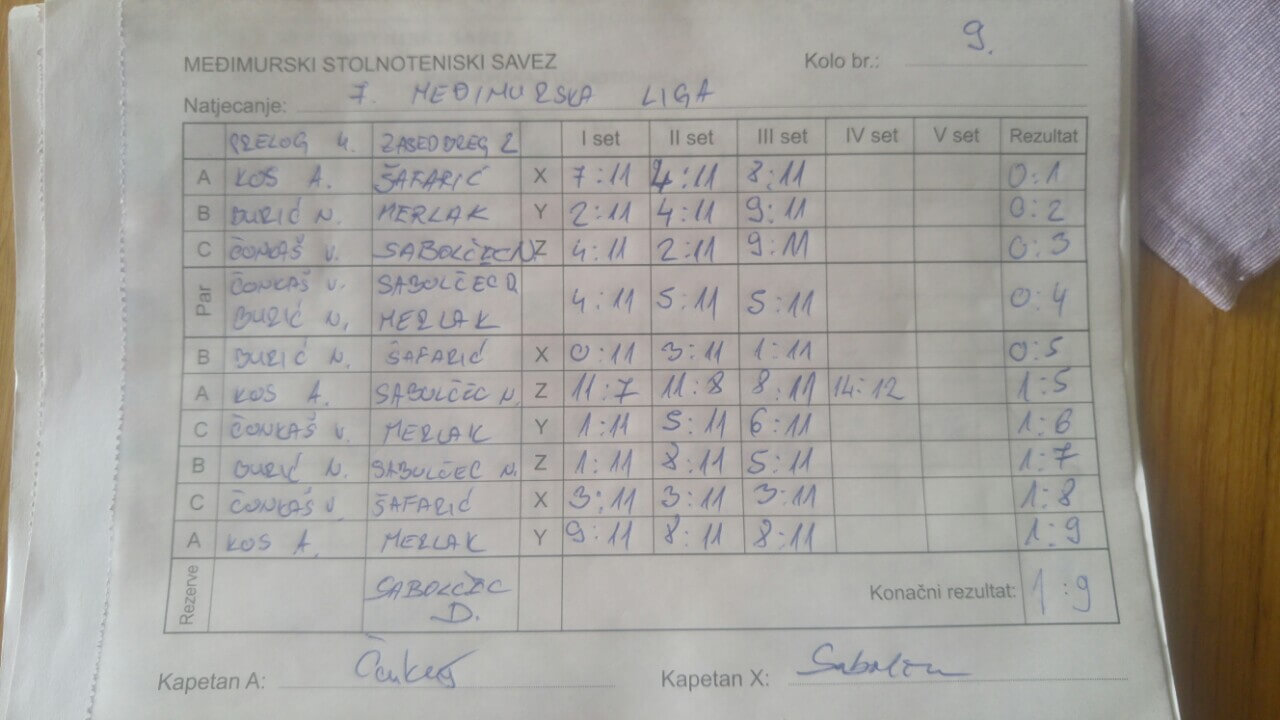 9.
MEĐIMURSKI STOLNOTENISKI SAVEZ Kolo br.:
Natjecanje: 7. MEĐIMURSKA LIGA
PRELOG 4. ZASADBREG 2 I set II set III set IV set V set Rezultat
A KOS A. ŠAFARIĆ X 7:11 4:11 8:11 0:1
B ĐURIĆ N. MERLAK Y 2:11 4:11 9:11 0:2
C ČONKAŠ V. SABOLČEC N Z 4:11 2:11 9:11 0:3
Par ČONKAŠ V. SABOLČEC D 4:11 5:11 5:11 0:4
ĐURIĆ N. MERLAK
B ĐURIĆ N. ŠAFARIĆ X 0:11 3:11 1:11 0:5
A KOS A. SABOLČEC N. Z 11:7 11:8 8:11 14:12 1:5
C ČONKAŠ V. MERLAK Y 1:11 5:11 6:11 1:6
B ĐURIĆ N. SABOLČEC N. Z 1:11 8:11 5:11 1:7
C ČONKAŠ V. ŠAFARIĆ X 3:11 3:11 3:11 1:8
A KOS A. MERLAK Y 9:11 8:11 8:11 1:9
Rezerve SABOLČEC D. Konačni rezultat: 1:9
Kapetan A: Kapetan X: